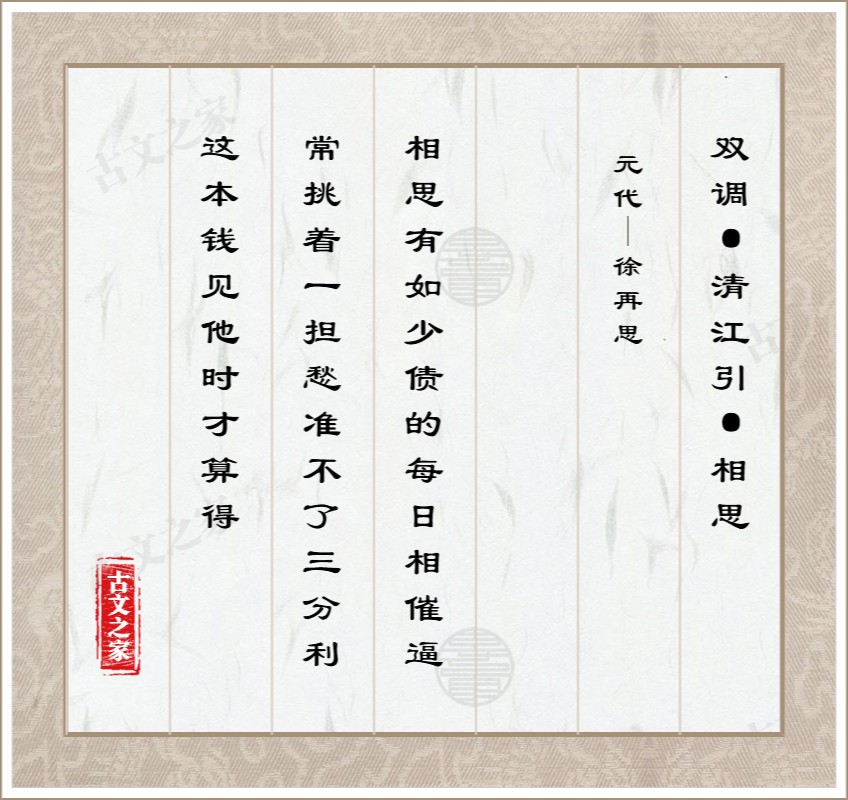 双调•清江引•相思
元代—徐再思
相思有如少债的每日相催逼
常挑着一担愁准不了三分利
这本钱见他时才算得
古文之家